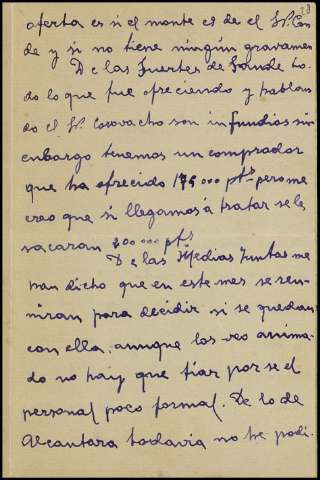 oferta es si el monte es de el Sr. Con
de y si no tiene ningún gravamen
De las Fuertes de Conde to-
do lo que fue ofreciendo y hablan
do el Sr. Corovacho son infundios sin
embargo tenemos un comprador
que ha ofrecido 175000 pts pero me
creo que si llegamos á tratar se le
sacaran 200000 pts
De las Medias Juntas me
han dicho que en este mes se reu-
niran para decidir si se quedan
con ella, aunque los veo anima-
do no hay que fiar por se el
personal poco formal. De lo de
Alcantara todavia no he podi-